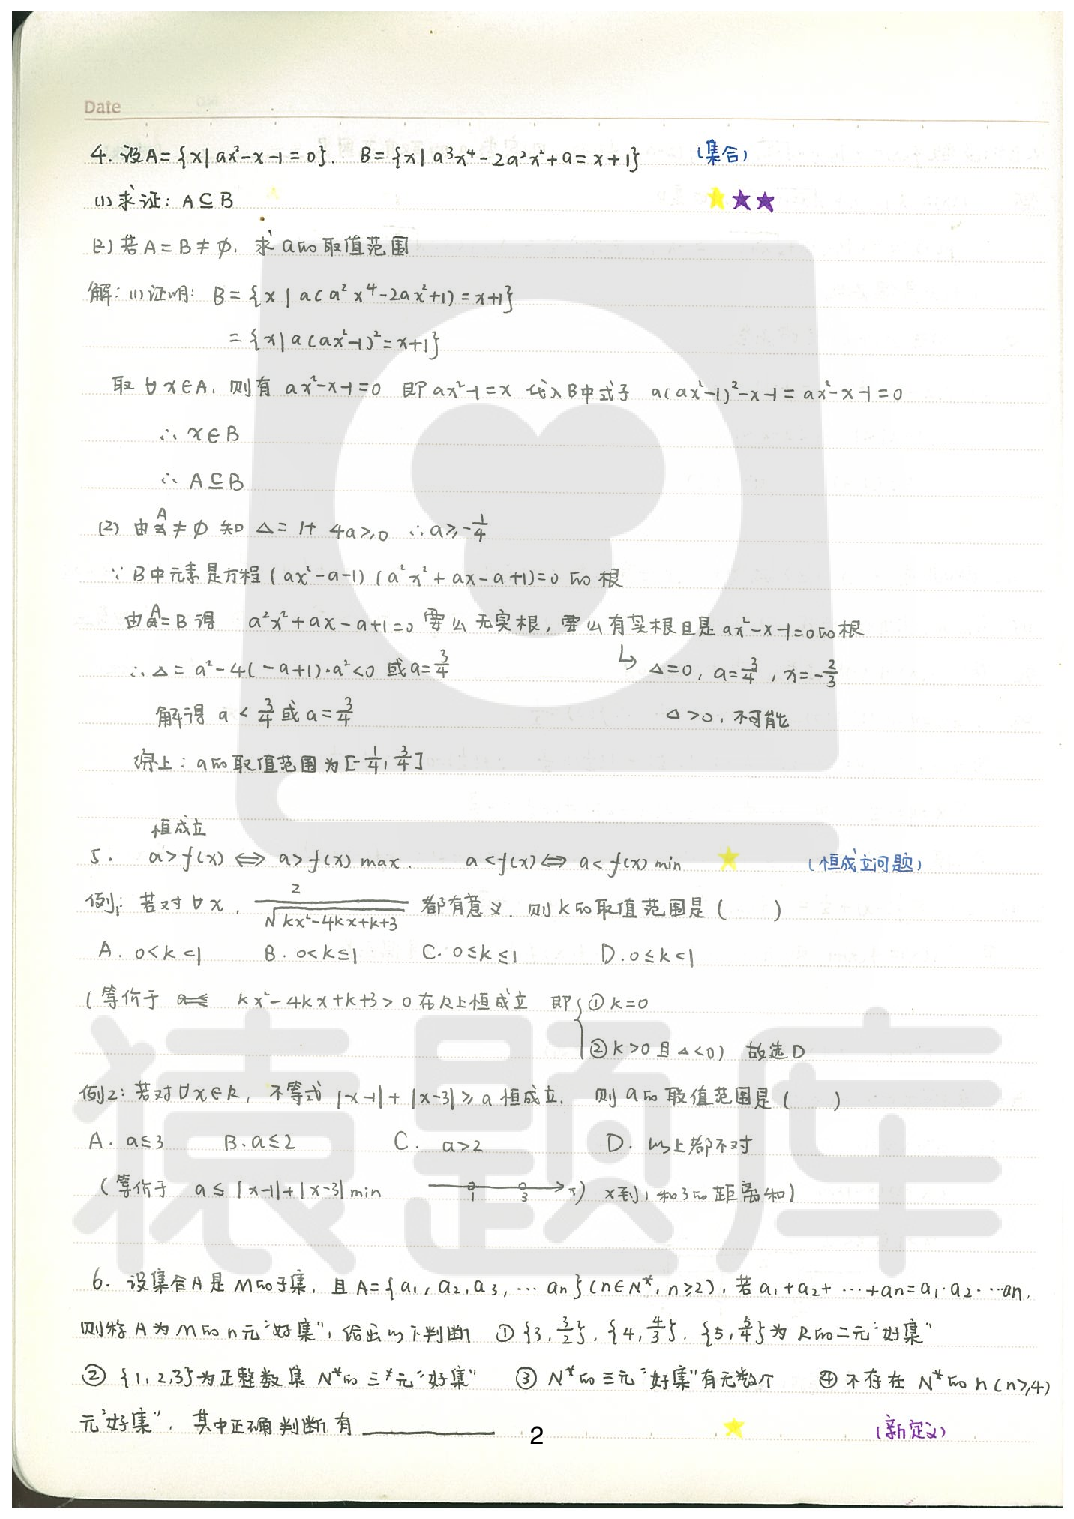 Date
4. 设A={x|ax²-x-1=0}. B={x|a³x⁴-2a²x²+a=x+1} (集合)
(1)求证: A⊆B
(2)若A=B≠∅, 求a的取值范围
解:(1)证明: B={x|a(a²x⁴-2ax²+1)=x+1}
={x|a(ax²-1)²=x+1}
取∀x∈A, 则有 ax²-x-1=0 即ax²-1=x 代入B中式子 a(ax²-1)²-x-1=ax²-x-1=0
∴ x∈B
∴ A⊆B
(2) 由A≠∅ 知 △=1+4a≥0 ∴a≥-1/4
∵B中元素是方程(ax²-a-1)(a²x²+ax-a+1)=0 的根
由A=B得 a²x²+ax-a+1=0 要么无实根, 要么有实根且是ax²-x-1=0的根
∴△=a²-4(-a+1)·a²<0 或a=3/4 ↳ △=0, a=3/4, x=-2/3
解得 a<3/4 或a=3/4 △>0, 不可能
综上: a的取值范围为[-1/4, 3/4]
恒成立
5. a>f(x)⇔a>f(x)max. a<f(x)⇔a<f(x)min (恒成立问题)
例1: 若对∀x, 2/√(kx²-4kx+k+3) 都有意义, 则k的取值范围是( )
A. 0<k<1 B. 0<k≤1 C. 0≤k≤1 D. 0≤k<1
(等价于 kx²-4kx+k+3>0在R上恒成立 即{①k=0
②k>0且△<0) 故选D
例2: 若对∀x∈R, 不等式|x-1|+|x-3|≥a恒成立, 则a的取值范围是( )
A. a≤3 B. a≤2 C. a>2 D. 以上都不对
(等价于 a≤|x-1|+|x-3|min 1 3 x到1和3的距离和)
6. 设集合A是M的子集, 且A={a₁,a₂,a₃,…an}(n∈N*, n≥2), 若a₁+a₂+…+an=a₁·a₂…an,
则称A为M的n元"好集", 给出以下判断 ①{3,3/2}, {4,4/3}, {5,5/4}为R的二元"好集"
②{1,2,3}为正整数集N*的三元"好集" ③N*的三元"好集"有无数个 ④不存在N*的n(n≥4)
元"好集". 其中正确判断有________ (新定义)
2
猿题库